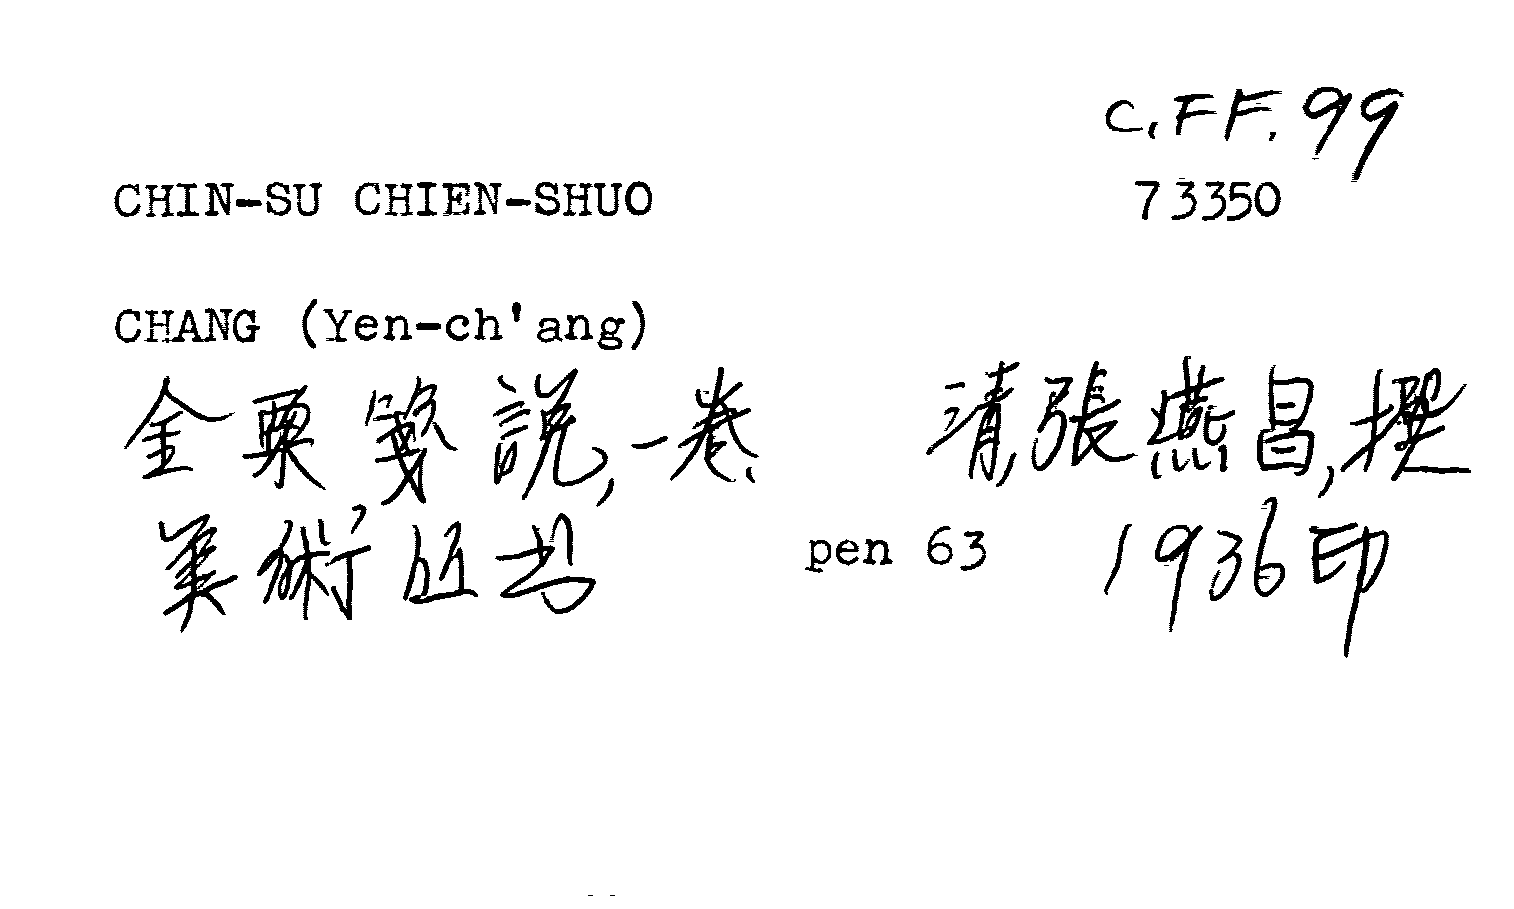 C.FF.99
CHIN-SU CHIEN-SHUO 73350
CHANG (Yen-ch'ang)
金粟箋説,一卷. 清,張燕昌,撰
美術丛书 pen 63 1936印